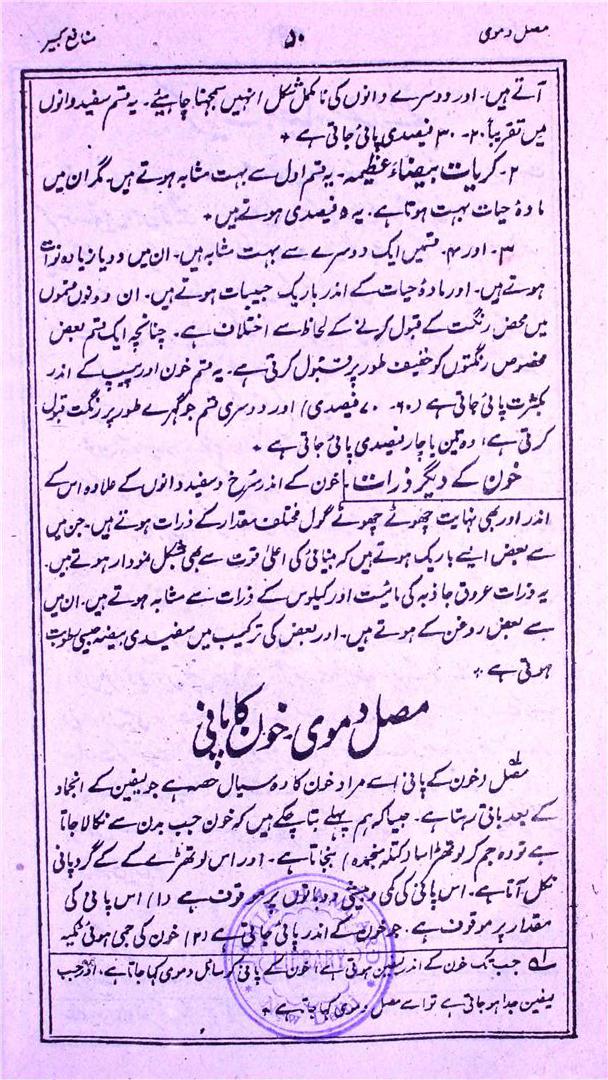 مصل دموی ۵۰ منافع کبیر
آتے ہیں۔ اور دوسرے دانوں کی نامکمل شکل انہیں سمجھنا چاہیئے۔ یہ قسم سفید دانوں
میں تقریباً ۲۰۔ ۳۰ فیصدی پائی جاتی ہے +
۲۔ کریات بیضاء عظیمہ۔ یہ قسم اول سے بہت مشابہ ہوتے ہیں۔ مگر ان میں
مادۂ حیات بہت ہوتا ہے۔ یہ ۵ فیصدی ہوتے ہیں +
۳۔ اور ۴۔ قسمیں ایک دوسرے سے بہت مشابہ ہیں۔ ان میں دو یا زیادہ نواۃ
ہوتے ہیں۔ اور مادۂ حیات کے اندر باریک حبیبات ہوتے ہیں۔ ان دونوں قسموں
میں محض رنگت کے قبول کرنے کے لحاظ سے اختلاف ہے۔ چنانچہ ایک قسم بعض
مخصوص رنگتوں کو خفیف طور پر قبول کرتی ہے۔ یہ قسم خون اور پیپ کے اندر
بکثرت پائی جاتی ہے (۶۰۔ ۷۰ فیصدی) اور دوسری قسم جو گہرے طور پر رنگت قبول
کرتی ہے، وہ تین یا چار فیصدی پائی جاتی ہے +
خون کے دیگر ذرات خون کے اندر سُرخ و سفید دانوں کے علاوہ اس کے
اندر اور بھی نہایت چھوٹے چھوٹے گول مختلف مقدار کے ذرات ہوتے ہیں۔ جن میں
سے بعض ایسے باریک ہوتے ہیں کہ بینائی کی اعلیٰ قوت سے بھی بمشکل نمودار ہوتے ہیں۔
یہ ذرات عروق جاذبہ کی مائیت اور کیلوس کے ذرات سے مشابہ ہوتے ہیں۔ ان میں
سے بعض روغن کے ہوتے ہیں۔ اور بعض کی ترکیب میں سفیدی بیضہ جیسی رطوبت
ہوتی ہے +
مصل دموی۔ خون کا پانی
مصل (خون کے پانی) سے مراد خون کا وہ سیال حصہ ہے جو لیفین کے انجماد
کے بعد باقی رہتا ہے۔ جیسا کہ ہم پہلے بتا چکے ہیں کہ خون جب بدن سے نکالا جاتا
ہے تو وہ جم کر لوتھڑا سا (کتلہ منجمدہ) بنجاتا ہے۔ اور اس لوتھڑے کے گرد پانی
نکل آتا ہے۔ اس پانی کی کمی و بیشی دو باتوں پر موقوف ہے (۱) اس پانی کی
مقدار پر موقوف ہے۔ جو خون کے اندر پائی جاتی ہے (۲) خون کی جمی ہوئی ٹکیہ
لہ جب تک خون کے اندر لیفین ہوتی ہے، خون کے پانی کو سائل دموی کہا جاتا ہے، اور جب
لیفین جدا ہو جاتی ہے تو اسے مصل دموی کہا جاتا ہے +
LIBRARY